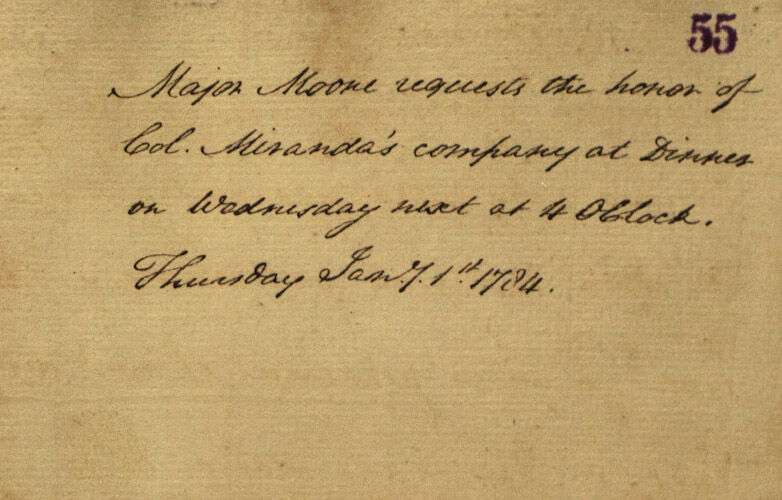 55
Major Moore requests the honor of
Col. Miranda's company at Dinner
on Wednesday next at 4 OClock.
Thursday Jany. 1st. 1784.